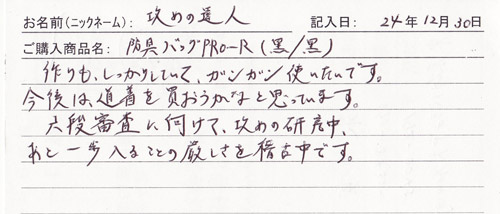 お名前(ニックネーム): 攻めの達人 記入日: 24年12月30日
ご購入商品名: 防具バッグPRO-R(黒/黒)
作りも、しっかりしていて、ガンガン使いたいです。
今後は、道着を買おうかなと思っています。
六段審査に向けて、攻めの研究中、
あと一歩入ることの厳しさを稽古中です。